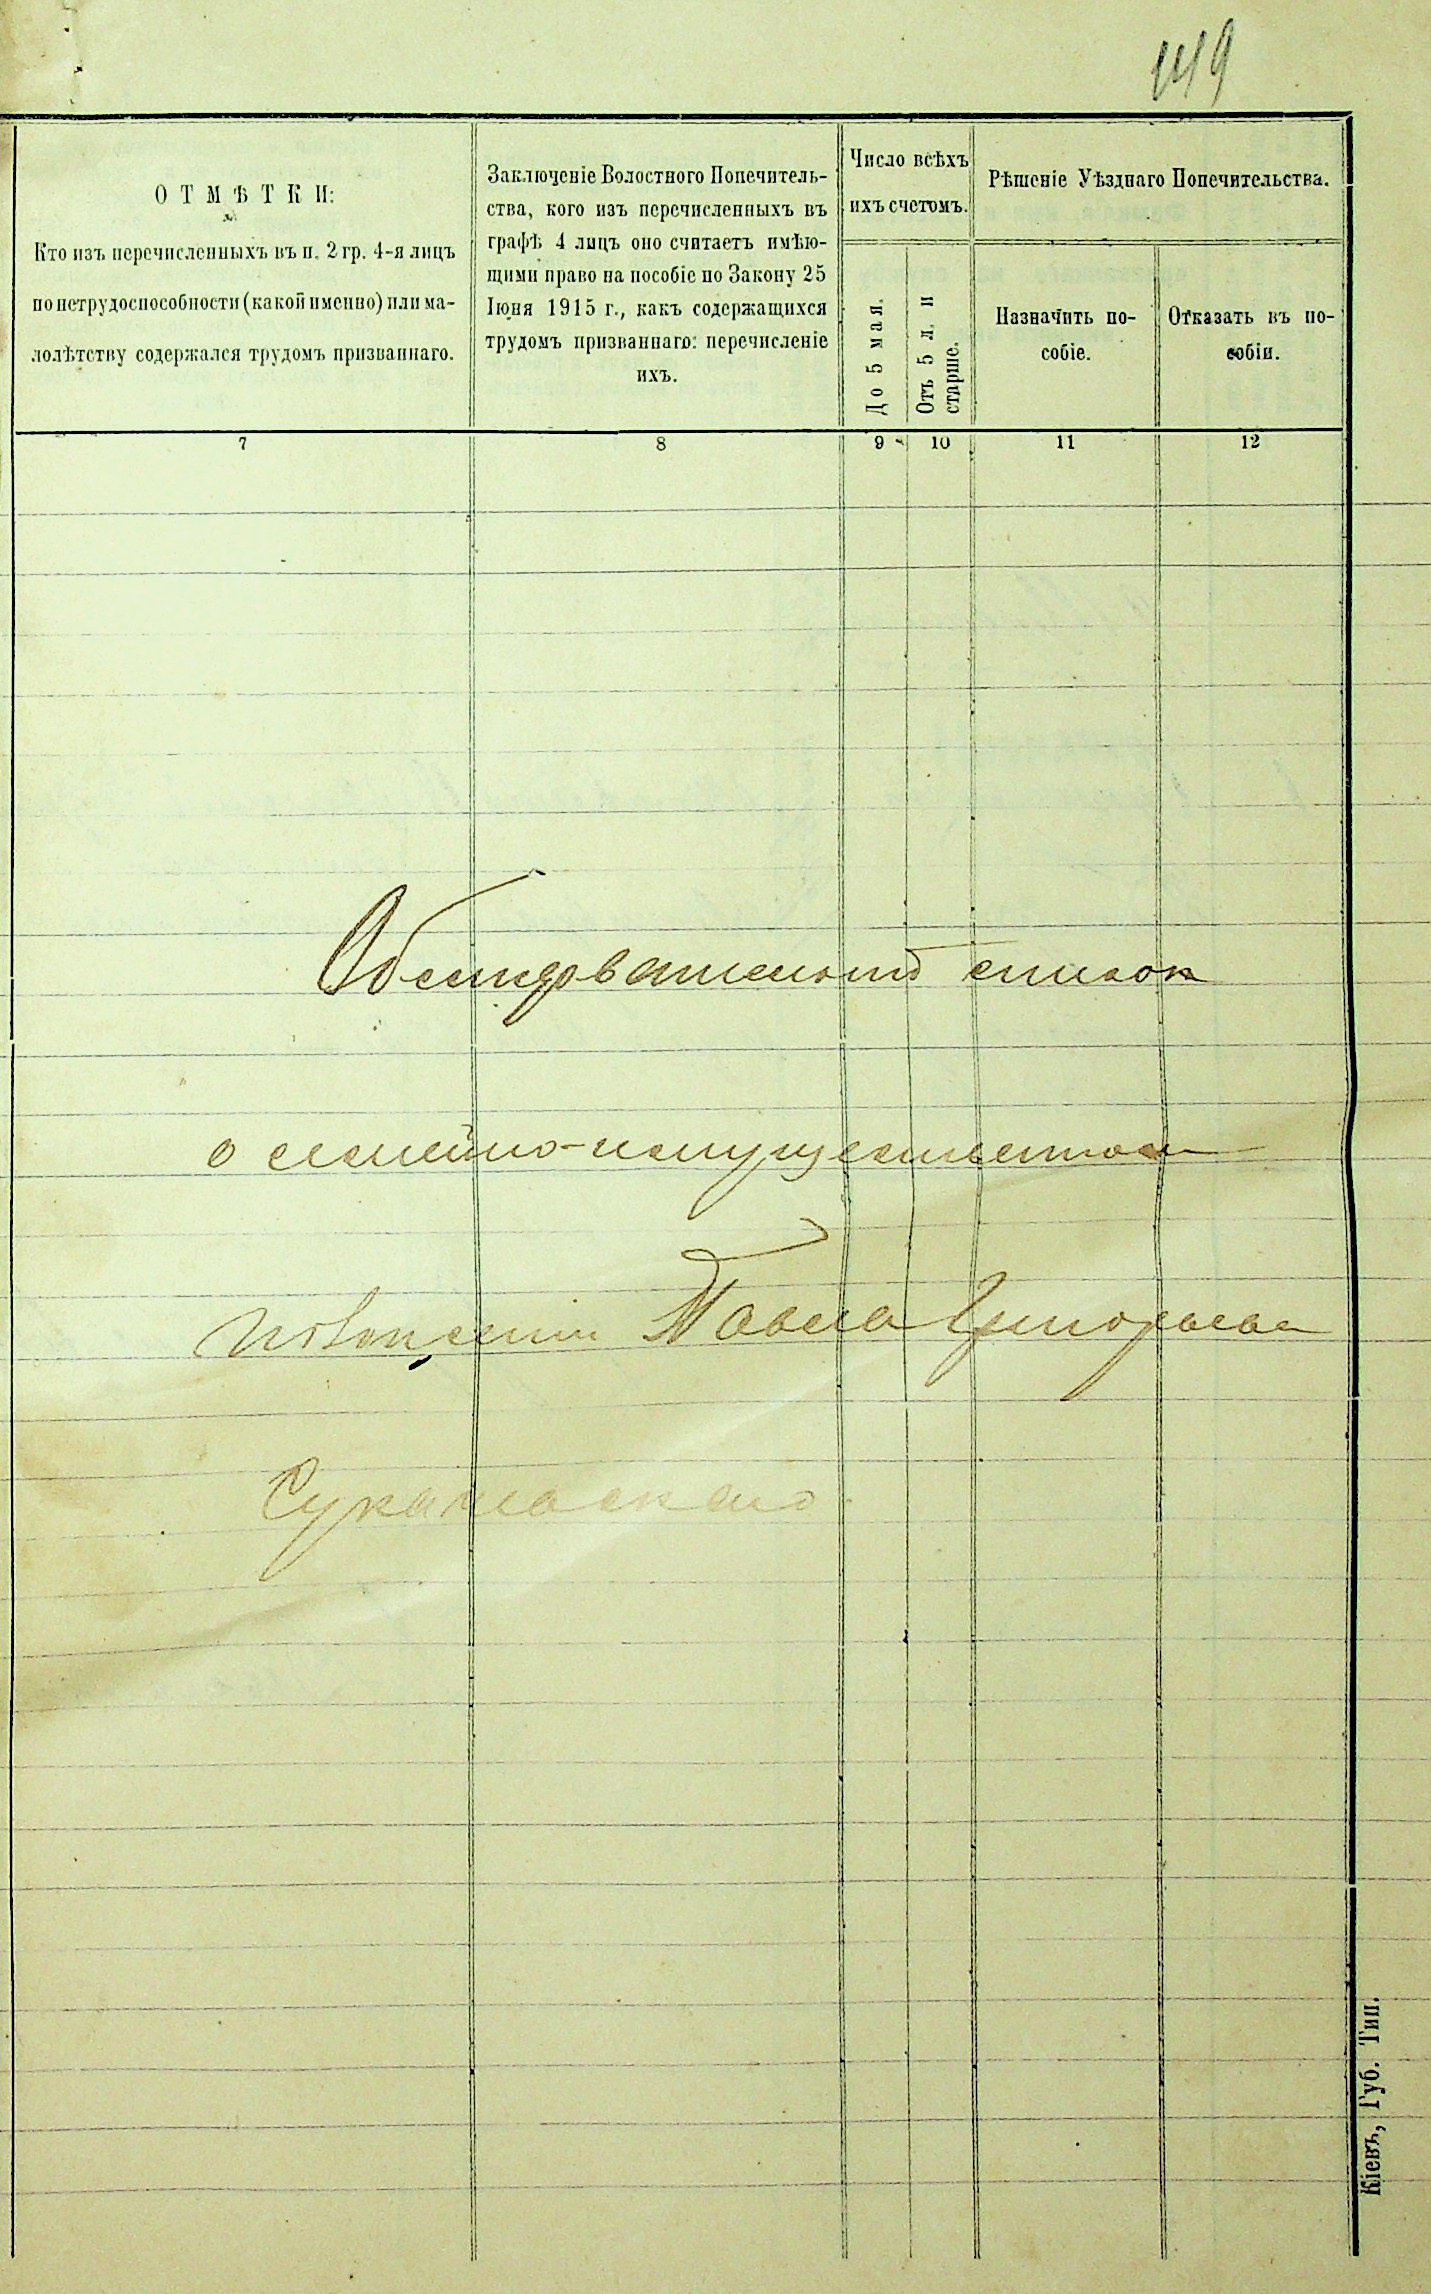 149
ОТМѢТКИ:
Кто изъ перечисленныхъ въ п. 2 гр. 4-я лицъ
по нетрудоспособности (какой именно) или ма-
лолѣтству содержался трудомъ призваннаго.
Заключеніе Волостного Попечитель-
ства, кого изъ перечисленныхъ въ
графѣ 4 лицъ оно считаетъ имѣю-
щими право на пособіе по Закону 25
Іюня 1915 г., какъ содержащихся
трудомъ призваннаго: перечисленіе
ихъ.
Число всѣхъ
ихъ счетомъ.
До 5 мая.
Отъ 5 л. и
старше.
Рѣшеніе Уѣзднаго Попечительства.
Назначить по-
собіе.
Отказать въ по-
собіи.
7 8 9 10 11 12
список
о семейно-имущественном
Павла Григорьева
Кіевъ, Губ. Тип.